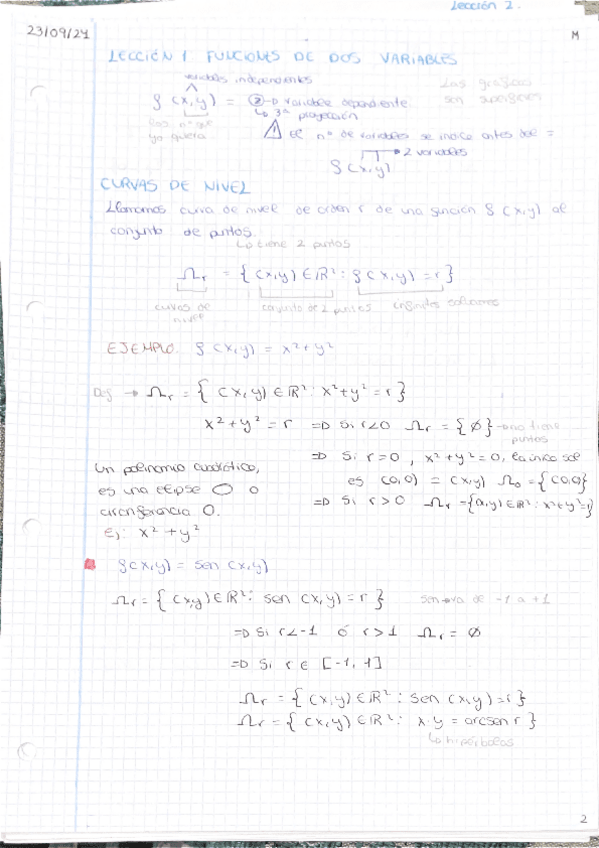 Lección 1.
23/09/24
M
LECCIÓN 1 FUNCIONES DE DOS VARIABLES
variables independientes
f (x,y) = z → variable dependiente
Las gráficas son superficies
↳ 3ª proyección
los nº que yo quiera
⚠ El nº de variables se indica antes del =
f(x,y) → 2 variables
CURVAS DE NIVEL
Llamamos curva de nivel de orden r de una función f (x,y) al
conjunto de puntos.
↳ tiene 2 puntos
Ω_r = { (x,y) ∈ ℝ² : f (x,y) = r }
curvas de nivel
conjunto de 2 puntos
infinitas soluciones
EJEMPLO: f (x,y) = x² + y²
→ Ω_r = { (x,y) ∈ ℝ² : x² + y² = r }
x² + y² = r ⇒ Si r<0 Ω_r = {∅} → no tiene puntos
⇒ Si r=0, x² + y² = 0, la única sol
es (0,0) = (x,y) Ω_0 = {(0,0)}
⇒ Si r > 0 Ω_r = {(x,y) ∈ ℝ² : x² + y² = r}
Un polinomio cuadrático,
es una elipse o
circunferencia O.
Ej: x² + y²
f(x,y) = sen (x,y)
Ω_r = { (x,y) ∈ ℝ² : sen (x,y) = r }
sen → va de -1 a +1
⇒ Si r<-1 ó r>1 Ω_r = ∅
⇒ Si r ∈ [-1, 1]
Ω_r = { (x,y) ∈ ℝ² : sen (x,y) = r }
Ω_r = { (x,y) ∈ ℝ² : x·y = arcsen r }
↳ hipérbolas
2